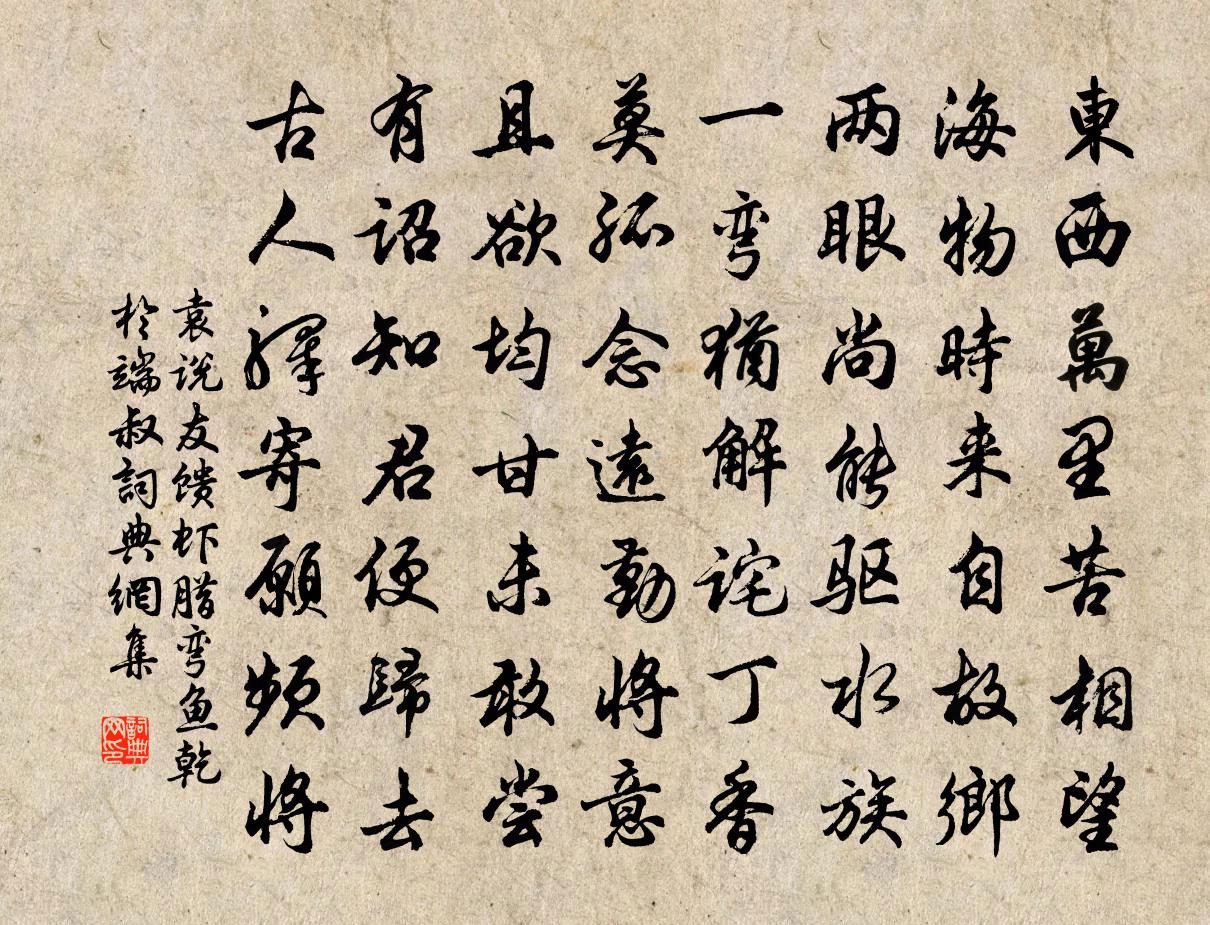 東西萬里苦相望
海物時来自故鄉
两眼尚能驱水族
一弯猶解詫丁香
莫孤念遠勤将意
且欲均甘未敢尝
有诏知君便歸去
古人驛寄願频将
袁说友馈虾腊弯鱼乾
於端叔詞典網集
詞典网印